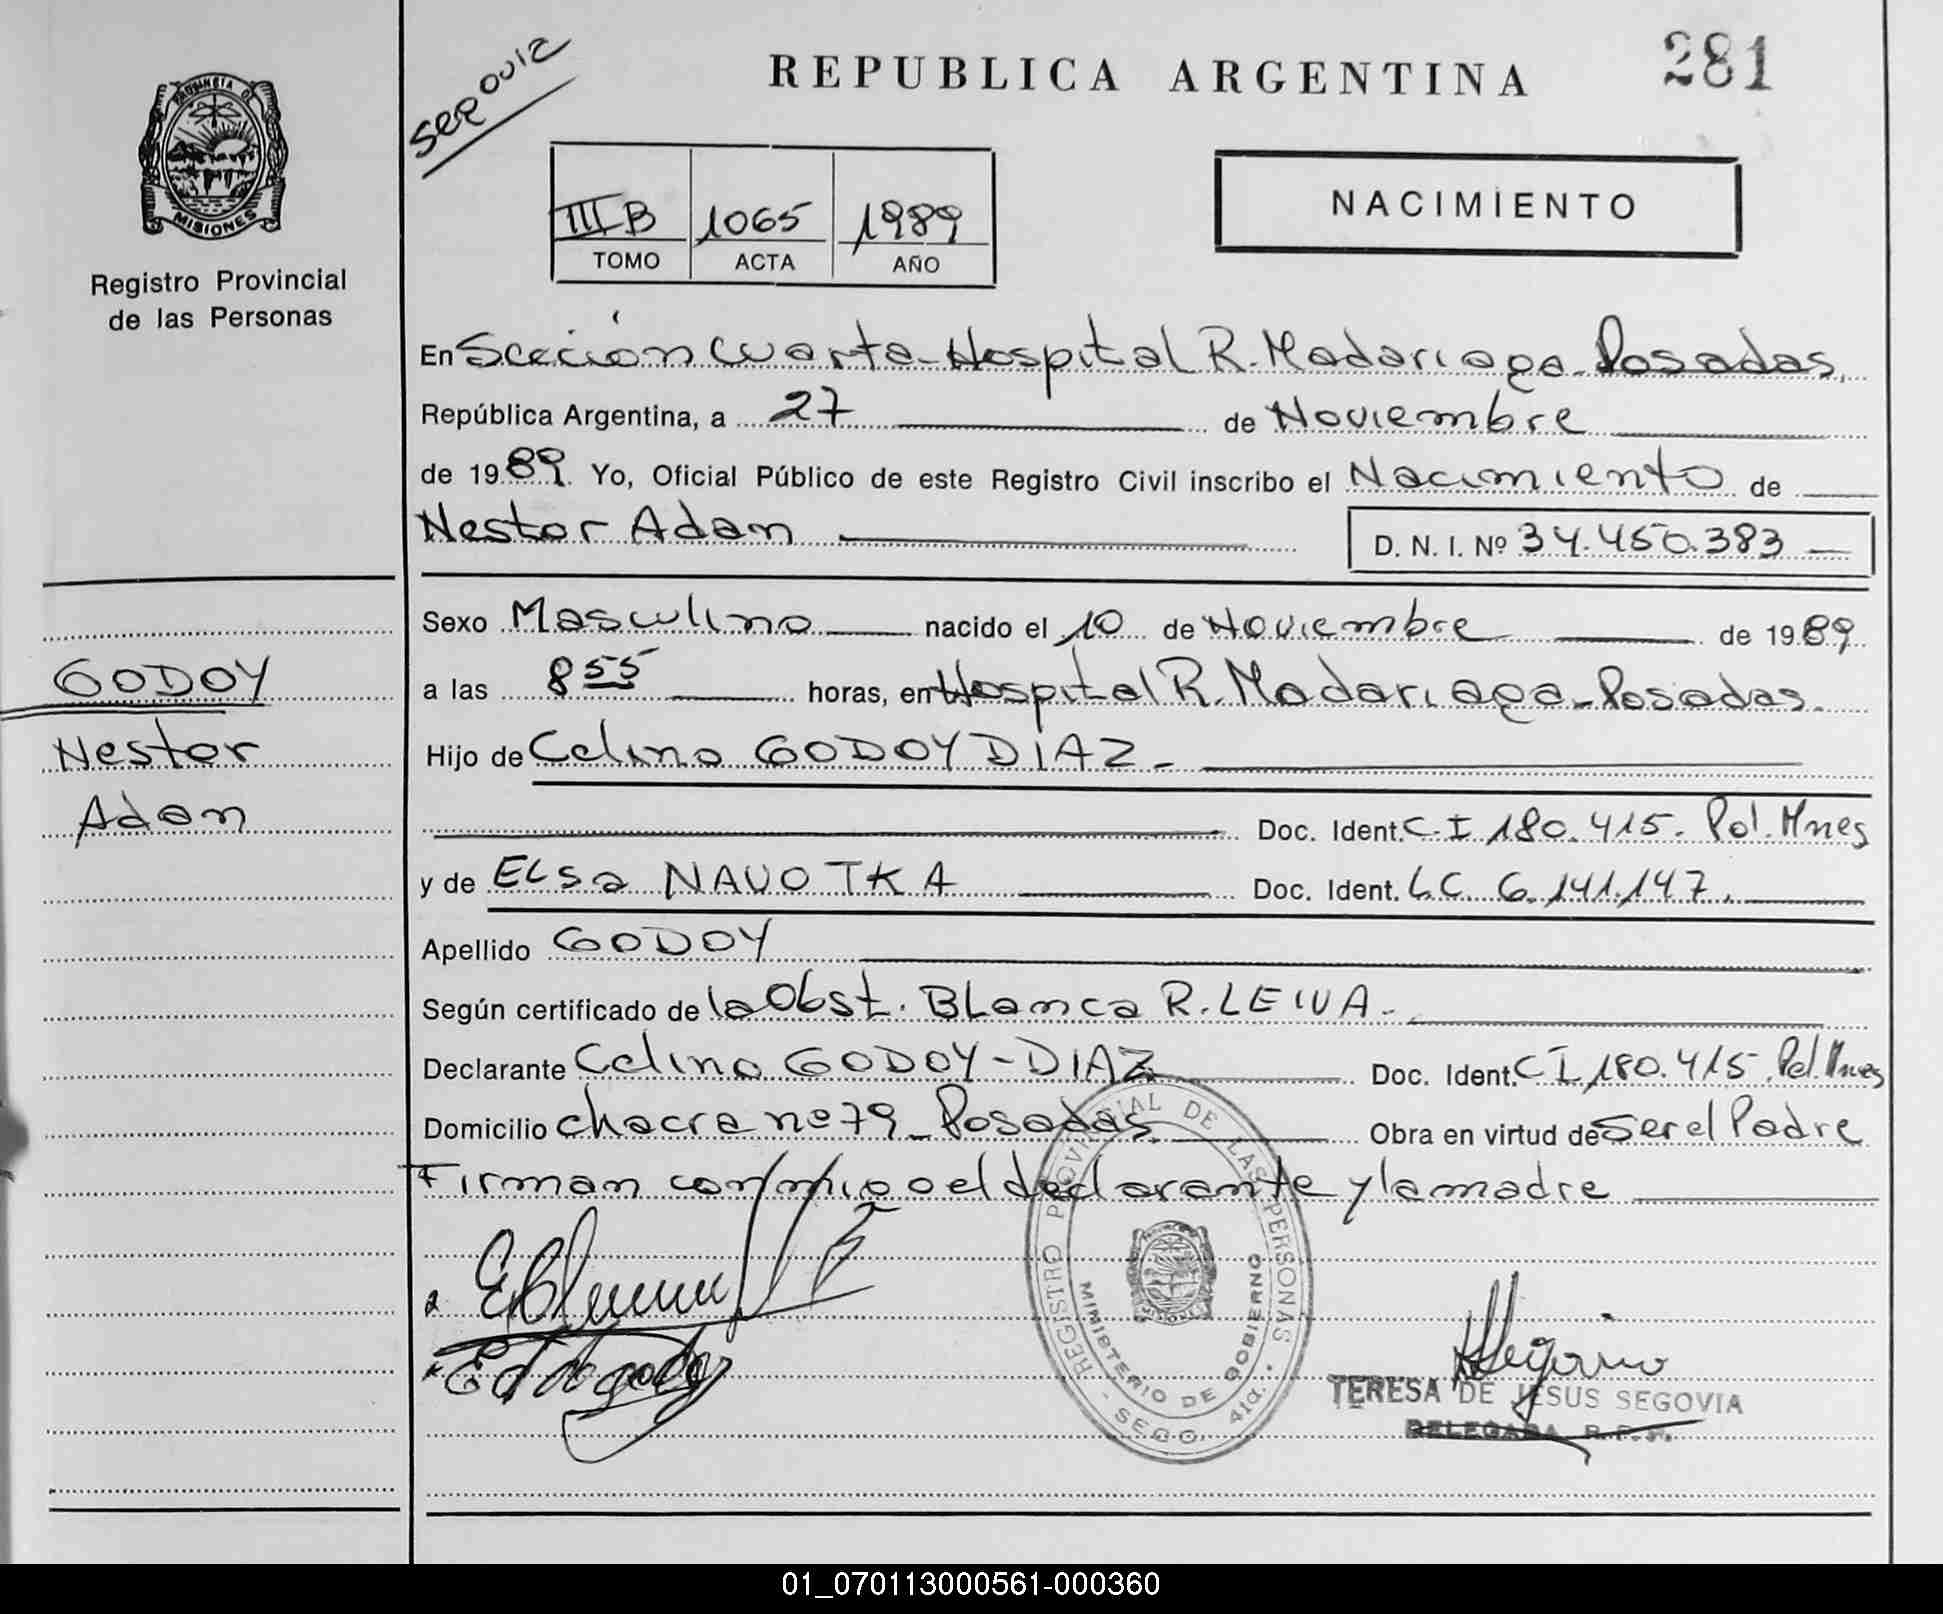 REPUBLICA ARGENTINA
281
PROVINCIA DE
MISIONES
Registro Provincial
de las Personas
III B 1065 1989
TOMO ACTA AÑO
NACIMIENTO
En Sección Cuarta - Hospital R. Madariaga - Posadas,
República Argentina, a 27 de Noviembre
de 1989. Yo, Oficial Público de este Registro Civil inscribo el Nacimiento de
Nestor Adan D. N. I. Nº 34.450.383
Sexo Masculino nacido el 10 de Noviembre de 1989
a las 8 55 horas, en Hospital R. Madariaga - Posadas.
Hijo de Celino GODOY DIAZ -
Doc. Ident. C.I 180.415. Pol. Mnes
y de ELsa NAVOTKA Doc. Ident. L.C. 6.141.147.
Apellido GODOY
Según certificado de la Obst. BLanca R. LEIVA -
Declarante Celino GODOY - DIAZ Doc. Ident. C I 180.415. Pol. Mnes
Domicilio chacra nº 79 - Posadas Obra en virtud de Ser el Padre
Firman conmigo el declarante y la madre
GODOY
Nestor
Adan
REGISTRO PROVINCIAL DE LAS PERSONAS
MINISTERIO DE GOBIERNO
TERESA DE JESUS SEGOVIA
DELEGADA R.P.P.
01_070113000561-000360